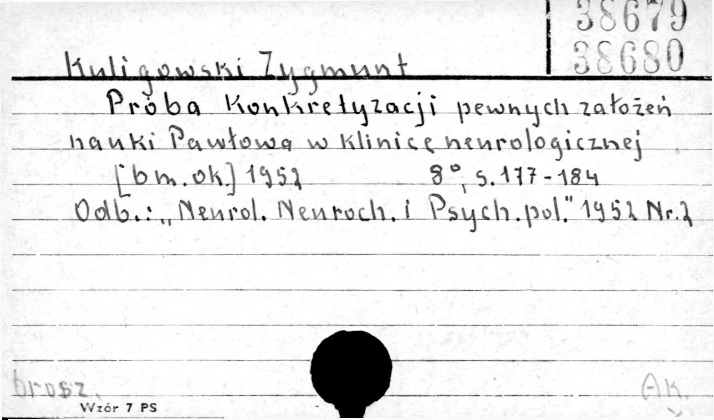 38679
38680
Kuligowski Zygmunt
Próba Konkretyzacji pewnych założeń
nauki Pawłowa w klinice neurologicznej
[b m. ok.] 1952 8°, s. 177-184
Odb.: „Neurol. Neuroch. i Psych. pol." 1952 Nr. 2
brosz.
Wzór 7 PS
AK.